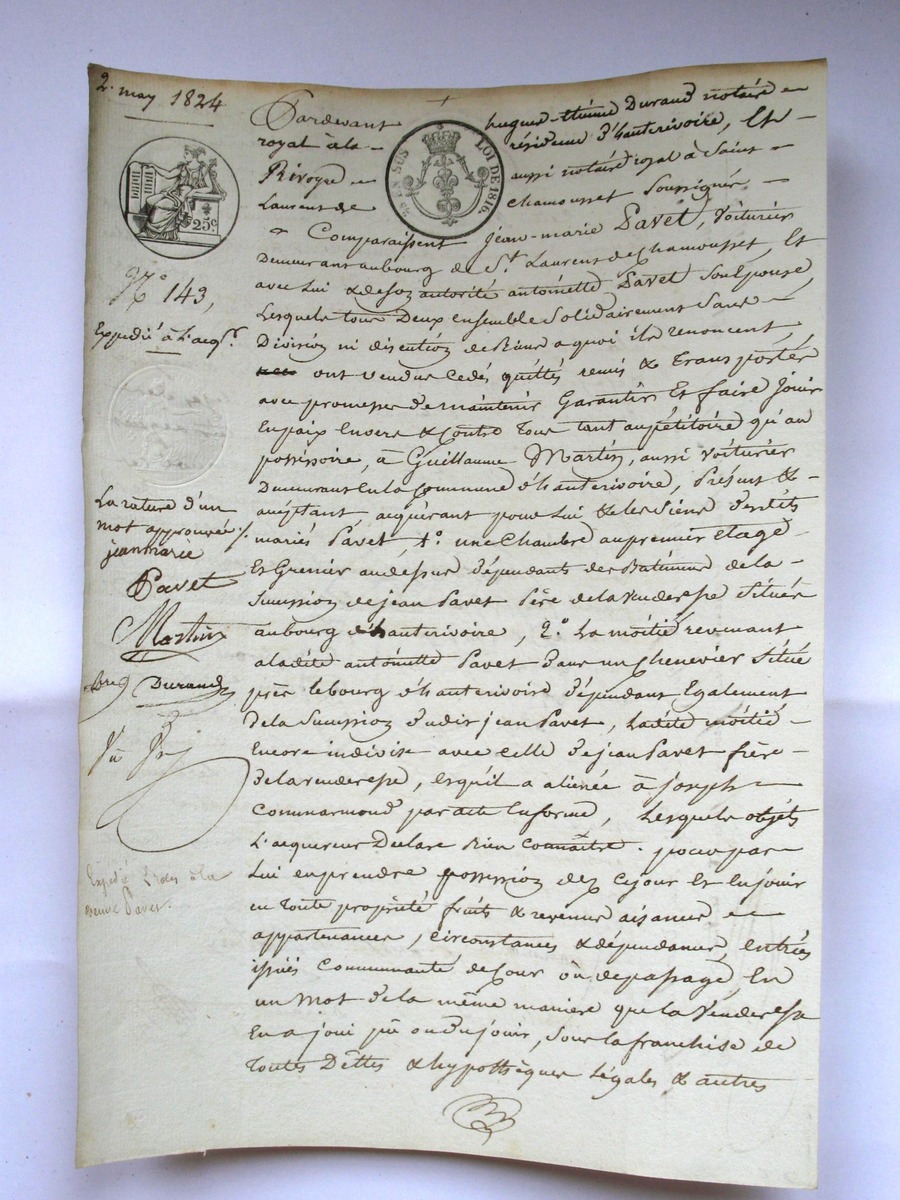 2. may 1824
Pardevant hugues-étienne Durand notaire
royal à la résidence d'hauterivoire, Et
Rivoyre aussi notaire royal à Saint
Laurens de chamousset Soussignés
EN SUS
LOI DE 1816.
25c
N° 143,
Expédié à l'acq.r
Comparaissent jean-marie Pavet, Voiturier
Demeurant au bourg de St. Laurens de Chamousset, Et
avec Lui & de son autorité antoinette Pavet Son Epouse,
Lesquels tous Deux ensemble Solidairement Sans
Division ni discution de biens a quoi ils renoncent,
ont vendus cedés quittés remis & transportés
avec promesses de maintenir Garantir Et faire jouir
En paix Envers & Contre tous tant au pétitoire qu'au
possessoire, à Guillaume Martin, aussi Voiturier
Demeurant En la Commune d'hauterivoire, Présent &
acceptant acquérant pour Lui & les Siens desdits
mariés Pavet, 1.° une Chambre au premier Etage
Et Grenier au dessus dépendants des Batimens de la
Succession de jean Pavet Père de la venderesse Situés
au bourg d'hauterivoire, 2.° La moitié revenant
a ladite antoinette Pavet Dans un Chenevier Situé
près le bourg d'hauterivoire Dépendant Egalement
De la Succession dudit jean Pavet, Ladite moitié
Encore indivise avec celle de jean Pavet frère
De la venderesse, Et qu'il a aliénée à joseph
Commarmond par acte En forme, Lesquels objets
L'acquereur Declare bien Connaître. pour par
Lui en prendre possession dès Ce jour Et En jouir
en toute propriété fruits & revenus aisances
appartenances, Circonstances & dépendances, Entrées
issues Communauté de Cour ou de passage, En
un mot De la même manière que la Venderesse
En a joui pû ou Du jouir, Sous la franchise de
toutes Dettes & hypothèques Légales & autres
La rature d'un
mot approuvée
jean marie
Pavet
Martin
Durand
Expédié
veuve Pavet.